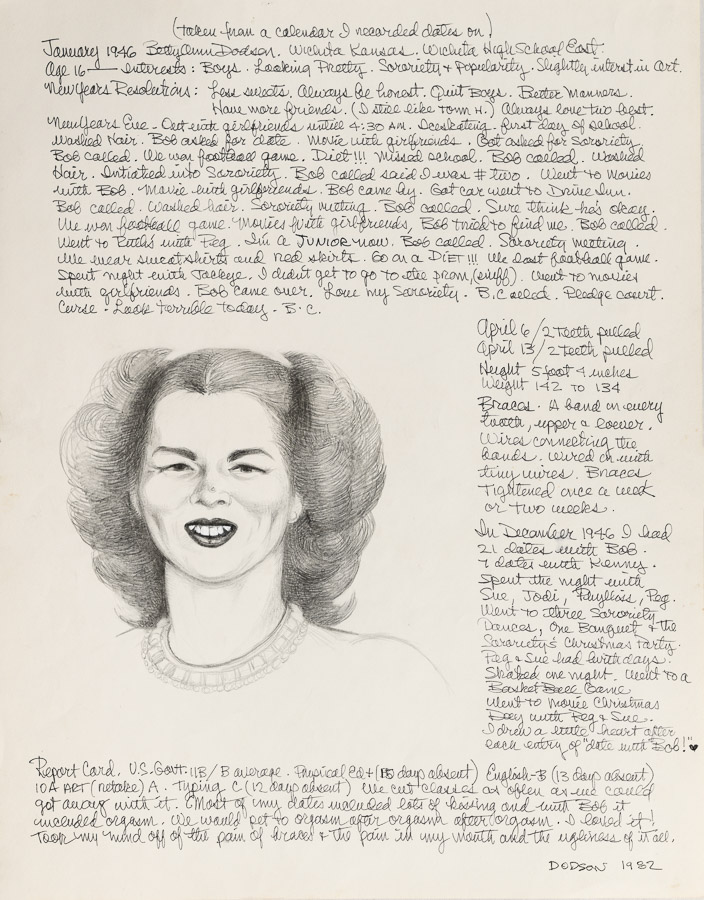 (taken from a calendar I recorded dates on)
January 1946 Betty Ann Dodson. Wichita Kansas. Wichita High School East.
Age 16 — Interests: Boys. Looking Pretty. Sorority & Popularity. Slightly interst in art.
New Years Resolutions: Less sweets. Always be honest. Quit Boys. Better Manners.
Have more friends. (I still like Tom H.) Always love two best.
New Years Eve - Out with girlfriends untill 4:30 AM. Iceskating. first day of school.
Washed Hair. Bob asked for date. Movie with girlfriends. Got asked for Sorority.
Bob called. We won football game. Diet!!! Missed school. Bob called. Washed
Hair. Initiated into Sorority. Bob called said I was # two. Went to Movies
with Bob. Movie with girlfriends. Bob came by. Got car went to Drive Inn.
Bob called. Washed hair. Sorority meeting. Bob called. Sure think he's okay.
We won football game. Movies with girlfriends, Bob tried to find me. Bob called.
Went to Ruth's with Peg. I'm a JUNIOR now. Bob called. Sorority meeting.
We wear sweatshirts and red skirts. Go on a DIET!!! We lost football game.
Spent night with Jackeye. I didn't get to go to the prom, (sniff). Went to movies
with girlfriends. Bob came over. Love my Sorority. B. Called. Pledge court.
Curse - Look terrible today. B.C.
April 6/2 teeth pulled
April 13/2 teeth pulled
Height 5 foot 4 inches
Weight 142 to 134
Braces. A band on every
tooth, upper & lower.
Wires connecting the
bands. Wired on with
tiny wires. Braces
Tightened once a week
or two weeks.
In December 1946 I had
21 dates with Bob.
7 dates with Kenny.
Spent the night with
Sue, Jodi, Phylliss, Peg.
Went to three Sorority
Dances, One Banquet & the
Sorority's Christmas Party.
Peg & Sue had birthdays.
Skated one night. Went to a
Basket Ball Game
Went to Movie Christmas
Day with Peg & Sue.
I drew a little heart after
each entry of "date with Bob!" ♥
Report Card. U.S. Govt. 11B/B average. Physical Ed+(15 days absent) English-B (13 days absent)
10A ART (retake) A. Typing C (12 days absent) We cut classes as often as we could
got away with it. (Most of my dates included lots of kissing and with Bob it
included orgasm. We would pet to orgasm after orgasm after orgasm. I loved it!
Took my mind off of the pain of braces & the pain in my mouth and the ugliness of it all.
DODSON 1982